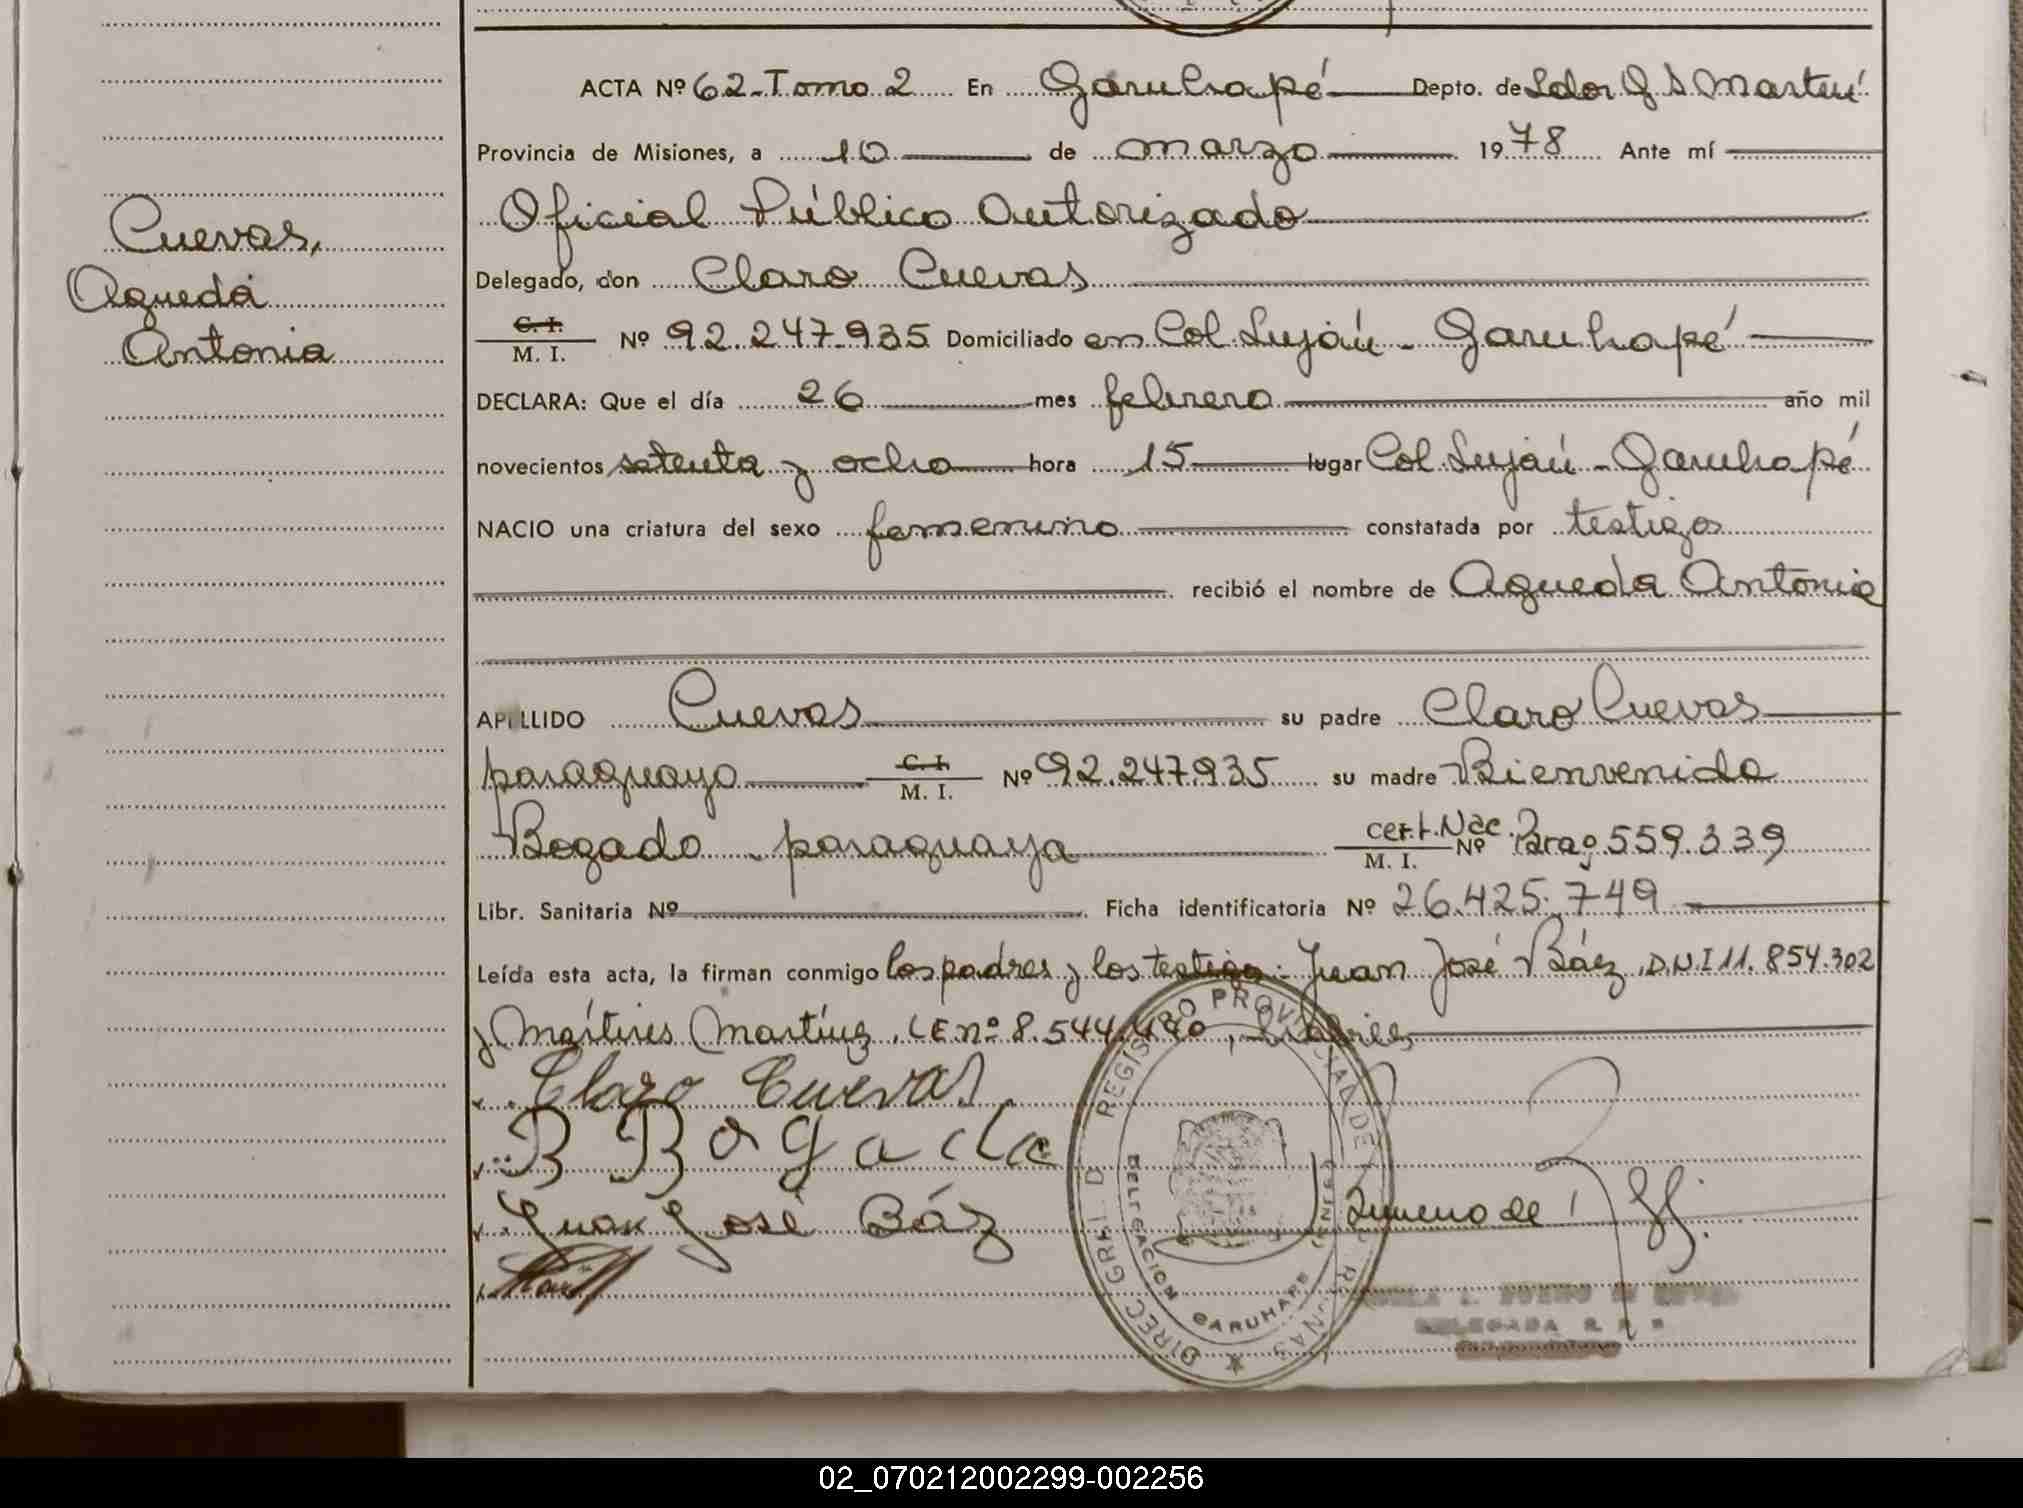 ACTA Nº 62 - Tomo 2 En Garuhapé Depto. de Ldor G S Martín
Provincia de Misiones, a 10 de marzo 1978 Ante mí
Oficial Público Autorizado
Delegado, don Claro Cuevas
C. I.
M. I. Nº 92.247.935 Domiciliado en Col. Luján - Garuhapé
DECLARA: Que el día 26 mes febrero año mil
novecientos setenta y ocho hora 15 lugar Col. Luján - Garuhapé
NACIO una criatura del sexo femenino constatada por testigos
recibió el nombre de Agueda Antonia
Cuevas,
Agueda
Antonia
APELLIDO Cuevas su padre Claro Cuevas
paraguayo C. I. M. I. Nº 92.247.935 su madre Bienvenida
Bogado - paraguaya cert. Nac. M. I. Nº Parag. 559.339
Libr. Sanitaria Nº Ficha identificatoria Nº 26.425.749
Leída esta acta, la firman conmigo los padres y los testigos: Juan José Báez, D.N.I 11.854.302
y Mártires Martínez, LE nº 8.544.470,
Claro Cuevas
B Bogado
Juan José Báz
DIREC. GRAL. D REGISTRO PROVINCIAL DE LAS PERSONAS
DELEGACION GARUHAPE
MISIONES
DELEGADA R. P. P.
02_070212002299-002256